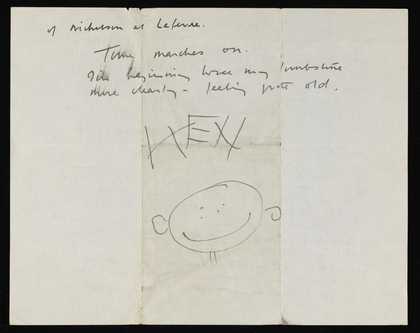 of Nicholson at Lefevre.
Time marches on.
I'm beginning to see my tombstone
more clearly – feeling quite old.